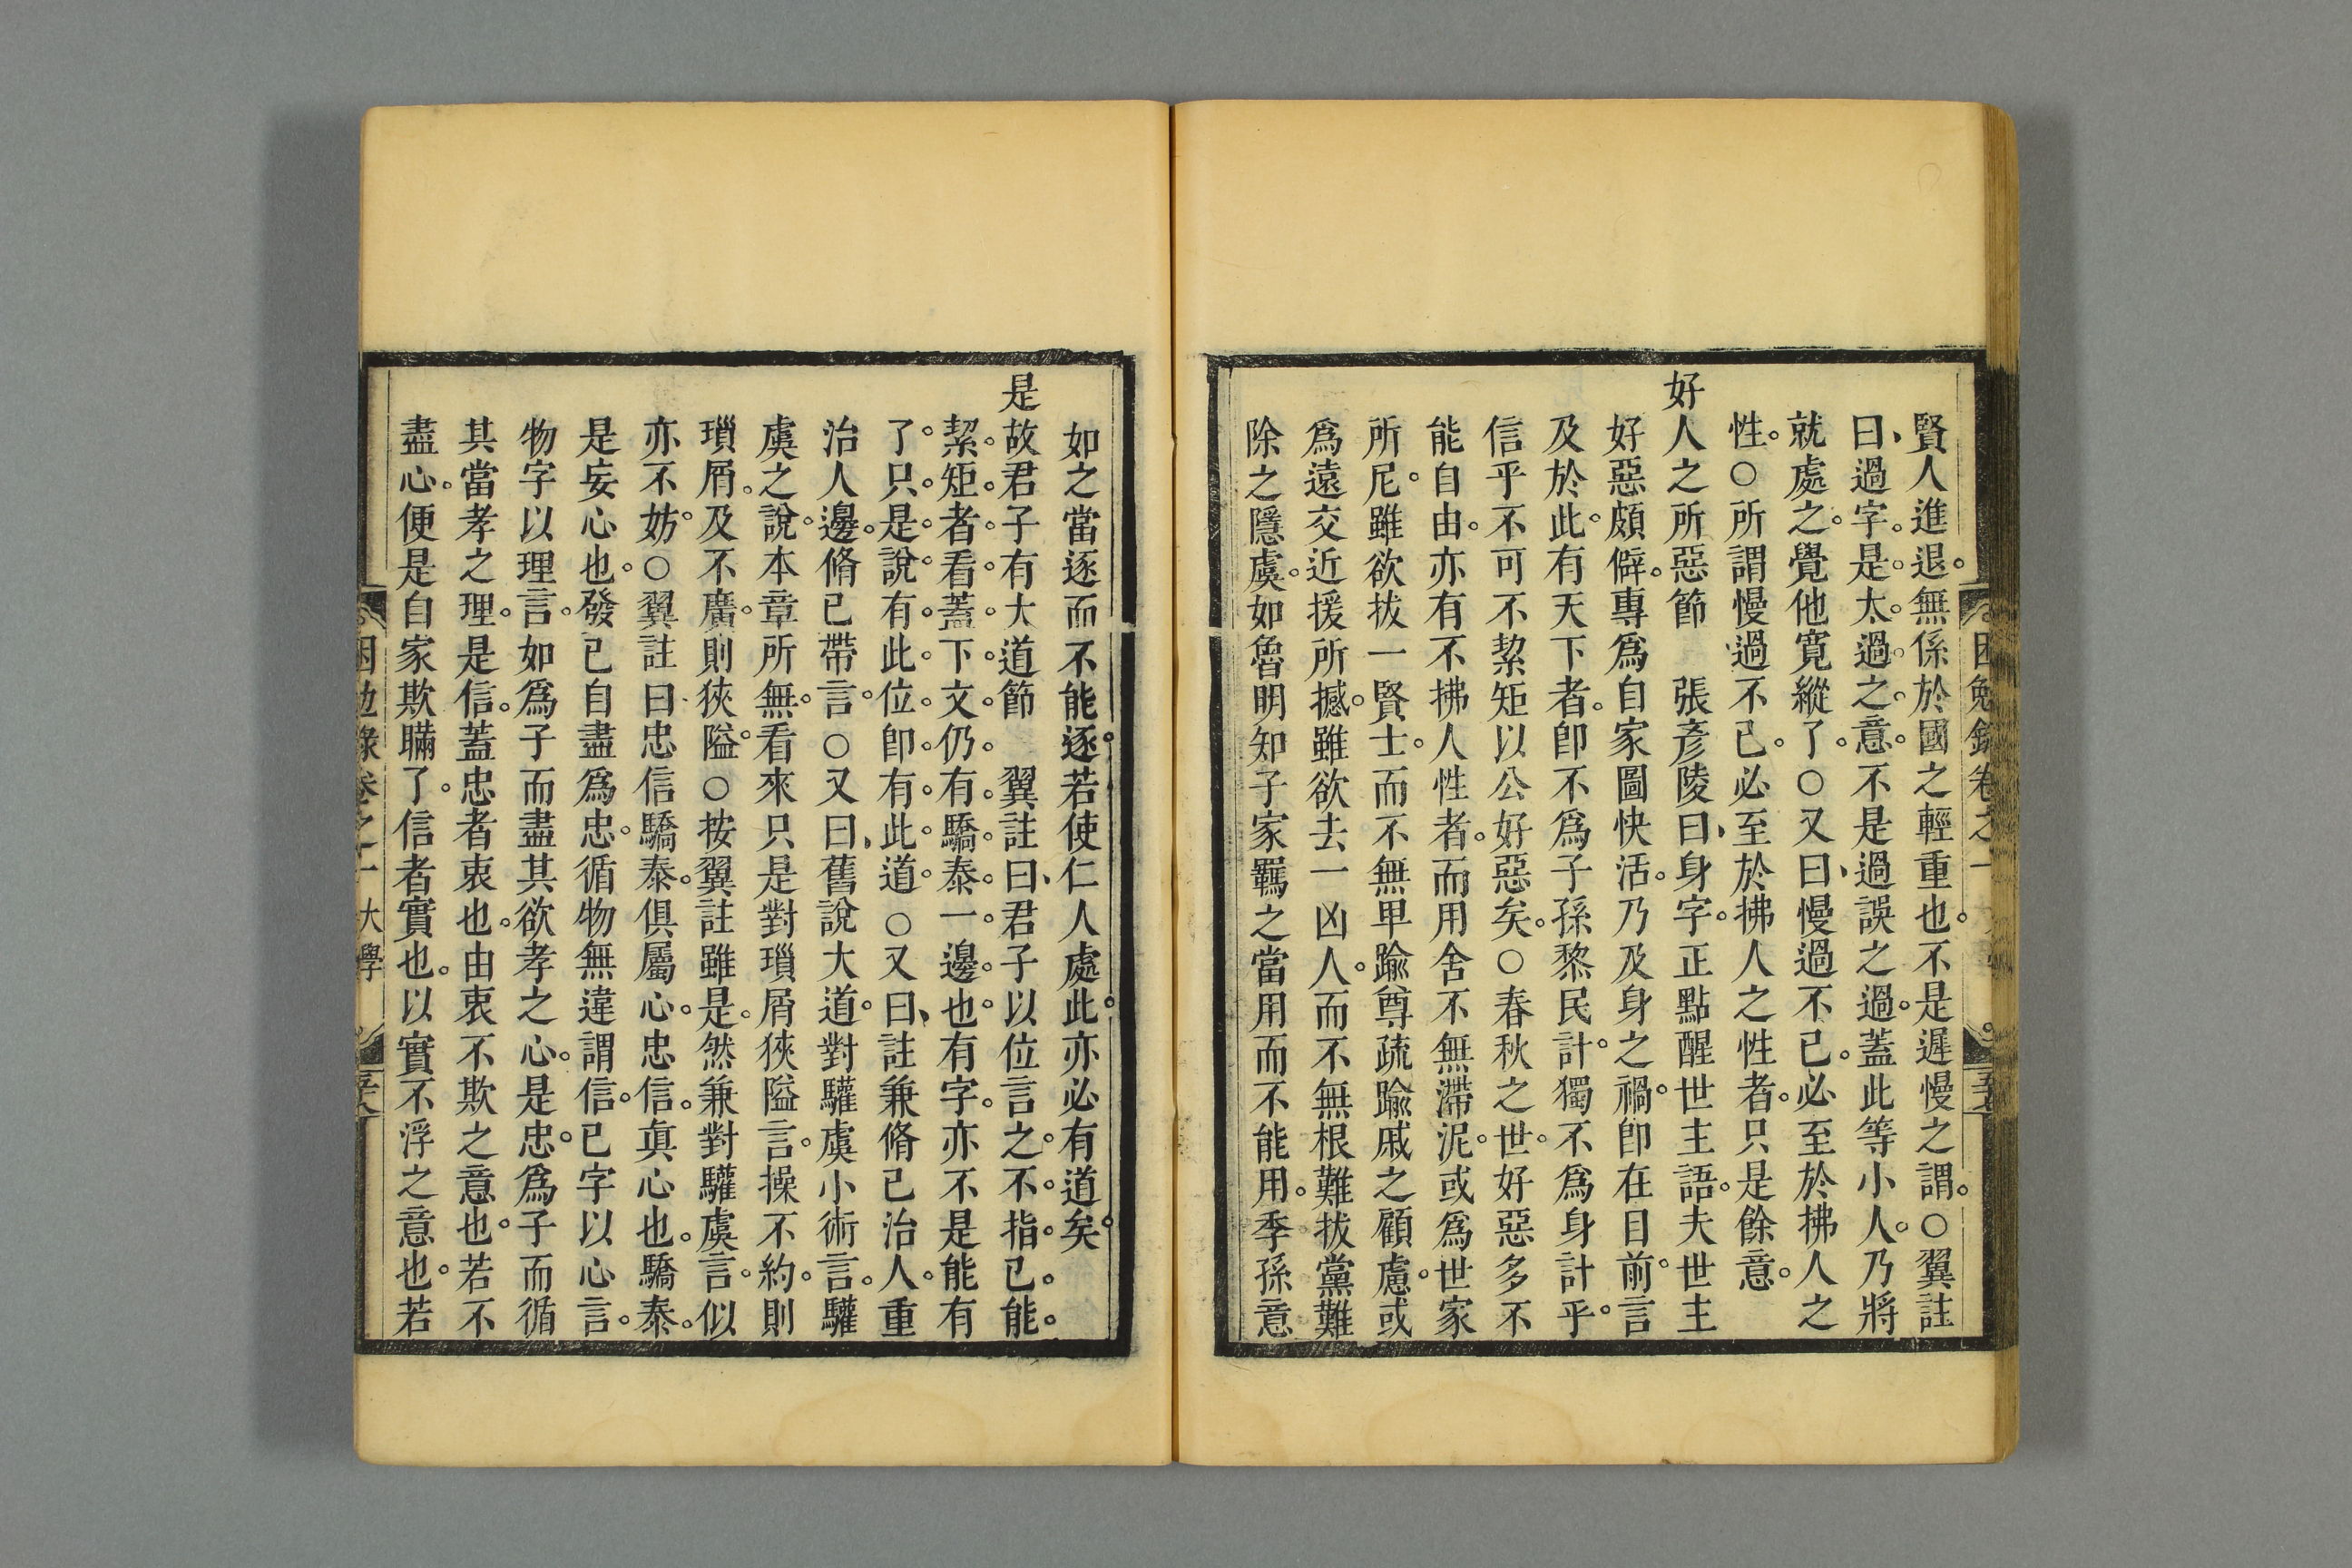 賢人進退。無係於國之輕重也。不是遲慢之謂。○翼註
曰、過字。是。太。過。之。意。不是過誤之過。蓋此等小人。乃將
就處之。覺他寬縱了。○又曰、慢過不已。必至於拂人之
性。○所謂慢過不已。必至於拂人之性者。只是餘意。
好人之所惡節　張彥陵曰、身字。正點醒世主語。夫世主
好惡頗僻。專爲自家圖快活。乃及身之禍。卽在目前。言
及於此。有天下者。卽不爲子孫黎民計。獨不爲身計乎。
信乎不可不絜矩以公好惡矣。○春秋之世。好惡多不
能自由。亦有不拂人性者。而用舍不無滯泥。或爲世家
所尼。雖欲拔一賢士。而不無卑踰尊疏踰戚之顧慮。或
爲遠交近援所撼。雖欲去一凶人。而不無根難拔黨難
除之隱虞。如魯明知子家羈之當用而不能用。季孫意
困勉錄卷之一
如之當逐而不能逐。若使仁人處此。亦必有道矣。
是故君子有大道節　翼註曰、君子以位言之。不。指。已。能。
絜。矩。者。看。蓋。下。文。仍。有。驕。泰。一。邊。也。有字。亦不是能有
了。只。是。說。有。此。位。卽。有。此。道。○又曰、註兼脩己治人。重
治人邊。脩己帶言。○又曰、舊說大道。對驩虞小術言。驩
虞之說。本章所無。看來只是對瑣屑狹隘言。操不約。則
瑣屑。及不廣。則狹隘。○按翼註雖是。然兼對驩虞言。似
亦不妨。○翼註曰忠信驕泰。俱屬心。忠信。眞心也。驕泰。
是妄心也。發己自盡爲忠。循物無違謂信。己字以心言。
物字以理言。如爲子而盡其欲孝之心。是忠。爲子而循
其當孝之理。是信。蓋忠者衷也。由衷不欺之意也。若不
盡心。便是自家欺瞞了。信者實也。以實不浮之意也。若
困勉錄卷之一 大學